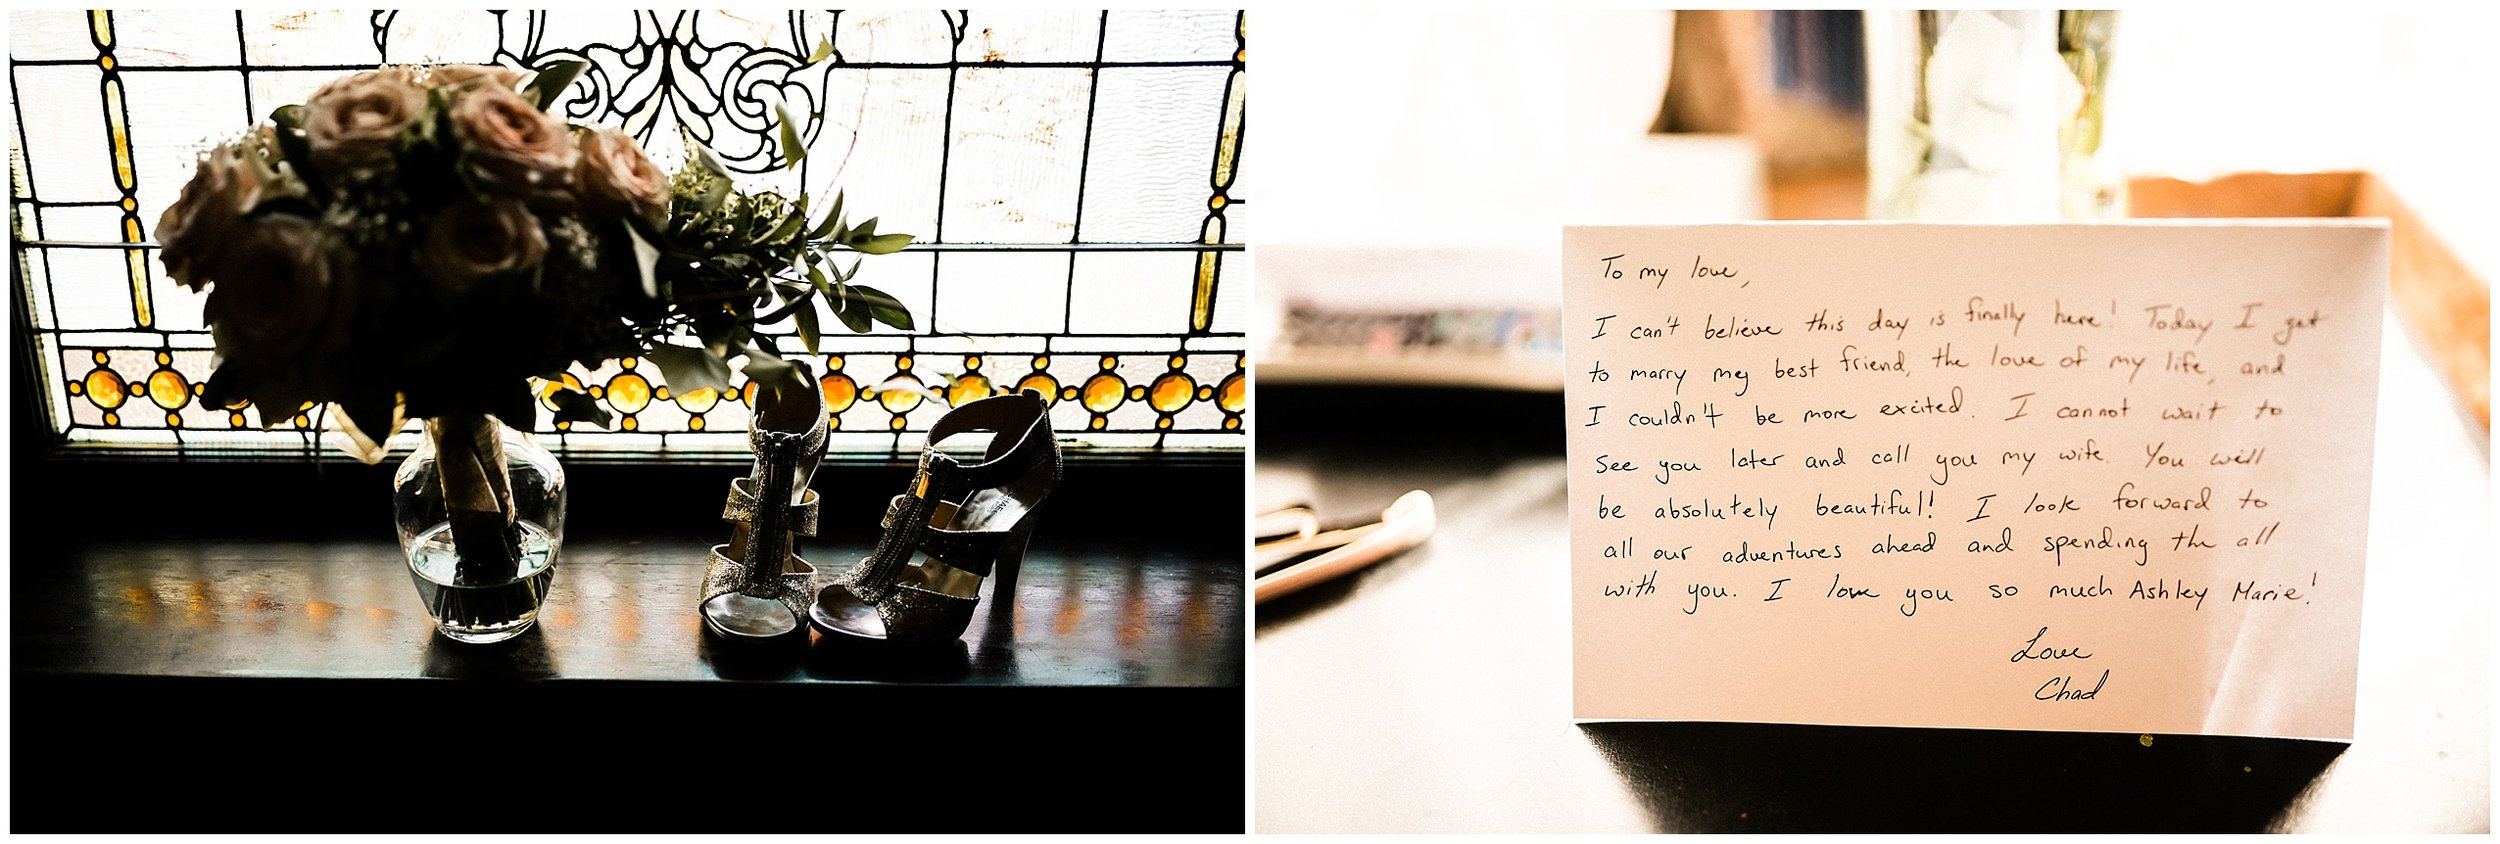 To my love,
I can't believe this day is finally here! Today I get
to marry my best friend, the love of my life, and
I couldn't be more excited. I cannot wait to
see you later and call you my wife. You will
be absolutely beautiful! I look forward to
all our adventures ahead and spending the all
with you. I love you so much Ashley Marie!
Love
Chad